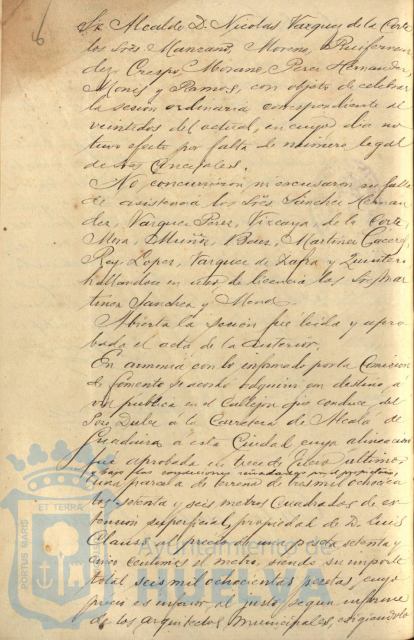 6
Sr Alcalde D. Nicolas Vazquez de la Corte
los Srés Manzano, Moreno, Ruifernan
dez, Crespo, Morano, Perez Hernandez
Monis y Ramos, con objeto de celebrar
la sesion ordinaria correspondiente al
veintidos del actual, en cuyo dia no
tuvo efecto por falta de número legal
de Srés Concejales.
No concurrieron, ni escusaron su falta
de asistencia los Srés Sanchez Hernan
dez, Vazquez Perez, Vizcaya, de la Corte,
Mora, Muñiz, Baez, Martinez, Caceres
Rey, Lopez, Vazquez de Zafra y Quintero
hallandose en uso de licencia los Srés Mar
tinez Sanchez y Mora.
Abierta la sesion fué leida y apro
bada el acta de la anterior.
En armonía con lo informado por la Comision
de fomento se acordó adquirir con destino a
via publica en el Callejon que conduce del
Pozo Dulce a la Carretera de Alcalá de
Guadaira a esta Ciudad cuya alineacion
fué aprobada en trece de último
y bajo las condiciones
una parcela de terreno de tres mil ochocien
tos setenta y seis metros cuadrados de ex
tension superficial, propiedad de D. Luis
Clauss, al precio de una peseta setenta y
cinco centimos el metro, siendo su importe
total seis mil ochocientas pesetas cuyo
precio es inferior al justo, segun informe
de los arquitectos municipales,
PORTUS MARIS
ET TERRÆ
Ayuntamiento de
HUELVA